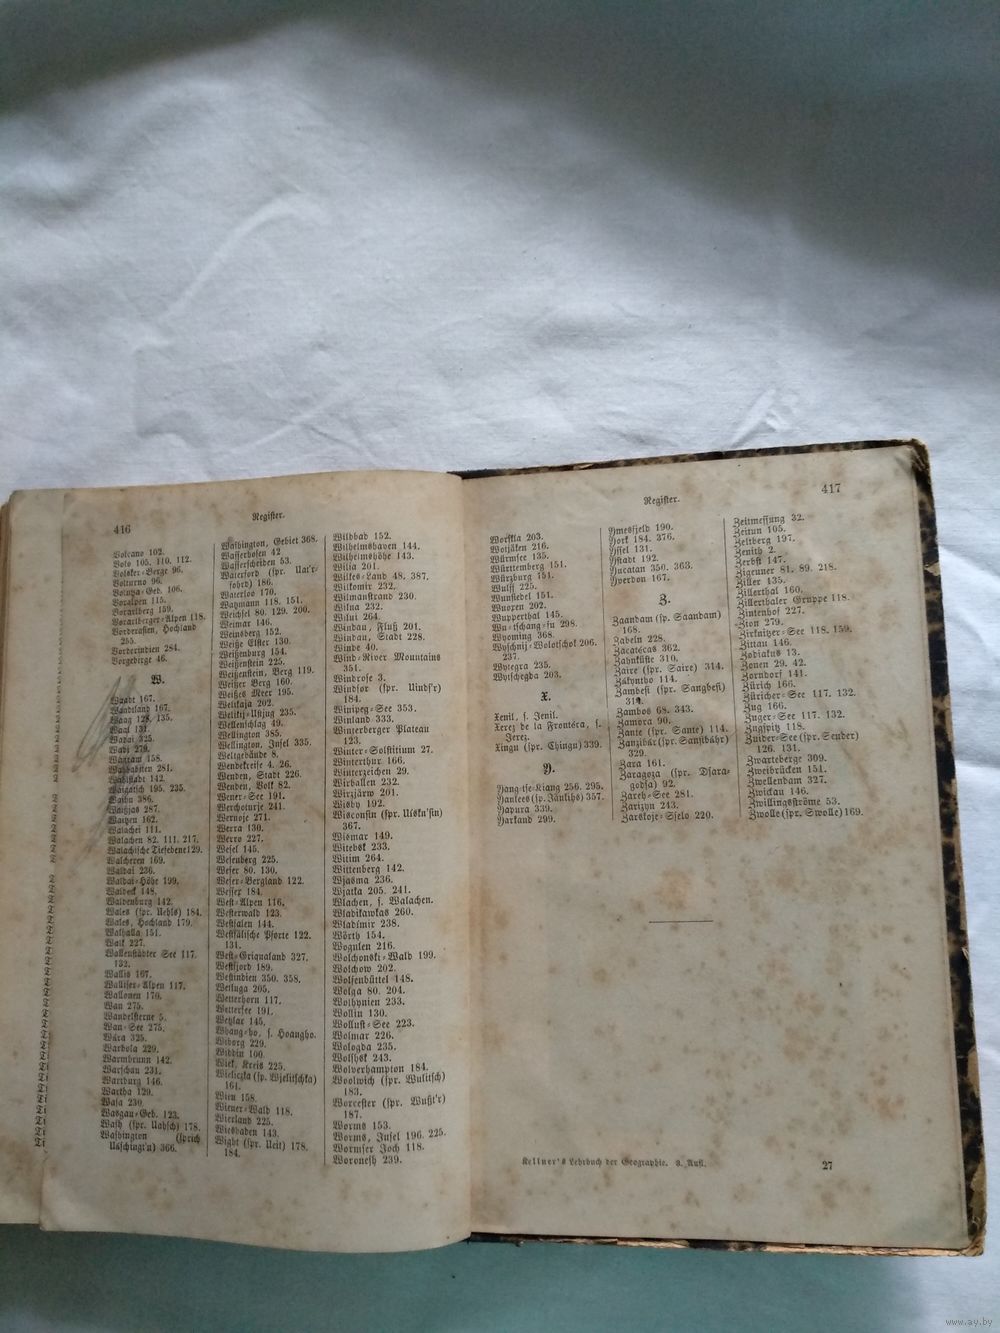 416
Register.
Volcano 102.
Volo 105. 110. 112.
Volsker-Berge 96.
Volturno 96.
Voralpen 115.
Vorarlberg 159.
Vorarlberger-Alpen 118.
Vorderasien, Hochland
255.
Vorderindien 284.
Vorgebirge 46.
W.
Waadt 167.
Waadtland 167.
Waag 128. 135.
Waal 131.
Wadai 325.
Wadi 279.
Wagram 158.
Wahhabiten 281.
Waigatsch 195. 235.
Waihu 386.
Waitzen 162.
Walachei 111.
Walachen 82. 111. 217.
Walachische Tiefebene 129.
Walcheren 169.
Waldai 236.
Waldai-Höhe 199.
Waldeck 148.
Waldenburg 142.
Wales (spr. Uehls) 184.
Wales, Hochland 179.
Walhalla 151.
Walk 227.
Wallenstädter See 117.
132.
Wallis 167.
Walliser-Alpen 117.
Wallonen 170.
Wan 275.
Wandelsterne 5.
Wan-See 275.
Wara 325.
Warbola 229.
Warmbrunn 142.
Warschau 231.
Wartburg 146.
Wartha 129.
Wasa 230.
Wasgau-Geb. 123.
Wash (spr. Uahsch) 178.
Washington (sprich
Uaschingt'n) 366.
Washington, Gebiet 368.
Wasserhosen 42
Wasserscheiden 53.
Waterford (spr. Uat'r-
fohrd) 186.
Waterloo 170.
Watzmann 118. 151.
Weichsel 80. 129. 200.
Weimar 146.
Weinsberg 152.
Weiße Elster 130.
Weißenburg 154.
Weißenstein 225.
Weißenstein, Berg 119.
Weißer Berg 160.
Weißes Meer 195.
Welikaja 202.
Welikij-Ustjug 235.
Wellenschlag 49.
Wellington 385.
Wellington, Insel 335.
Weltgebäude 8.
Wendekreise 4. 26.
Wenden, Stadt 226.
Wenden, Volk 82.
Wener-See 191.
Werchoturje 241.
Wernoje 271.
Werra 130.
Werro 227.
Wesel 145.
Wesenberg 225.
Weser 80. 130.
Weser-Bergland 122.
Wesser 184.
West-Alpen 116.
Westerwald 123.
Westfalen 144.
Westfälische Pforte 122.
131.
West-Griqualand 327.
Westfjord 189.
Westindien 350. 358.
Wetluga 205.
Wetterhorn 117.
Wettersee 191.
Wetzlar 145.
Whang-ho, s. Hoangho.
Wiborg 229.
Widdin 100.
Wiek, Kreis 225.
Wieliczka (sp. Wjelitschka)
161.
Wien 158.
Wiener-Wald 118.
Wierland 225.
Wiesbaden 143.
Wight (spr. Ueit) 178.
184.
Wildbad 152.
Wilhelmshaven 144.
Wilhelmshöhe 143.
Wilia 201.
Wilkes-Land 48. 387.
Wilkomir 232.
Wilmanstrand 230.
Wilna 232.
Wilui 264.
Windau, Fluß 201.
Windau, Stadt 228.
Winde 40.
Wind-River Mountains
351.
Windrose 3.
Windsor (spr. Uinds'r)
184.
Winipeg-See 353.
Winland 333.
Winterberger Plateau
123.
Winter-Solstitium 27.
Winterthur 166.
Winterzeichen 29.
Wirballen 232.
Wirzjärw 201.
Wisby 192.
Wisconsin (spr. Uiskn'sin)
367.
Wismar 149.
Witebsk 233.
Witim 264.
Wittenberg 142.
Wjasma 236.
Wjatka 205. 241.
Wlachen, s. Walachen.
Wladikawkas 260.
Wladimir 238.
Wörth 154.
Wogulen 216.
Wolchonski-Wald 199.
Wolchow 202.
Wolfenbüttel 148.
Wolga 80. 204.
Wolhynien 233.
Wollin 130.
Wollust-See 223.
Wolmar 226.
Wologda 235.
Wolssk 243.
Wolverhampton 184.
Woolwich (spr. Wulitsch)
183.
Worcester (spr. Wußt'r)
187.
Worms 153.
Worms, Insel 196. 225.
Wormser Joch 118.
Woronesh 239.
417
Register.
Worskla 203.
Wotjäken 216.
Würmsee 135.
Württemberg 151.
Würzburg 151.
Wulff 225.
Wunsiedel 151.
Wuoxen 202.
Wupperthal 145.
Wu-tschang-fu 298.
Wyoming 368.
Wyschnij-Wolotschok 206.
237.
Wytegra 235.
Wytschegda 203.
X.
Xenil, s. Jenil.
Xerez de la Frontéra, s.
Jerez.
Xingu (spr. Chingu) 339.
Y.
Yang-tse-Kiang 256. 295.
Yankees (sp. Jänkihs) 357.
Yapura 339.
Yarkand 299.
Ymesfjeld 190.
York 184. 376.
Yssel 131.
Ystadt 192.
Yucatan 350. 363.
Yverdon 167.
Z.
Zaandam (sp. Saandam)
168.
Zabeln 228.
Zacatécas 362.
Zahnküste 310.
Zaire (spr. Saire) 314.
Zákyntho 114.
Zambesi (spr. Sangbesi)
314.
Zambos 68. 343.
Zamora 90.
Zante (spr. Sante) 114.
Zanzibár (spr. Sansibáhr)
329.
Zara 161.
Zaragoza (spr. Dsara-
godsa) 92.
Zareh-See 281.
Zarizyn 243.
Zarskoje-Sjelo 220.
Zeitmessung 32.
Zeitun 105.
Zeltberg 197.
Zenith 2.
Zerbst 147.
Zigeuner 81. 89. 218.
Ziller 135.
Zillerthal 160.
Zillerthaler Gruppe 118.
Zintenhof 227.
Zion 279.
Zirknitzer-See 118. 159.
Zittau 146.
Zodiakus 13.
Zonen 29. 42.
Zorndorf 141.
Zürich 166.
Züricher-See 117. 132.
Zug 166.
Zuger-See 117. 132.
Zugspitz 118.
Zuider-See (spr. Seuder)
126. 131.
Zwarteberge 309.
Zweibrücken 151.
Zwellendam 327.
Zwickau 146.
Zwillingsströme 53.
Zwolle (spr. Swolle) 169.
Kellner's Lehrbuch der Geographie. 3. Aufl.
27
www.ay.by